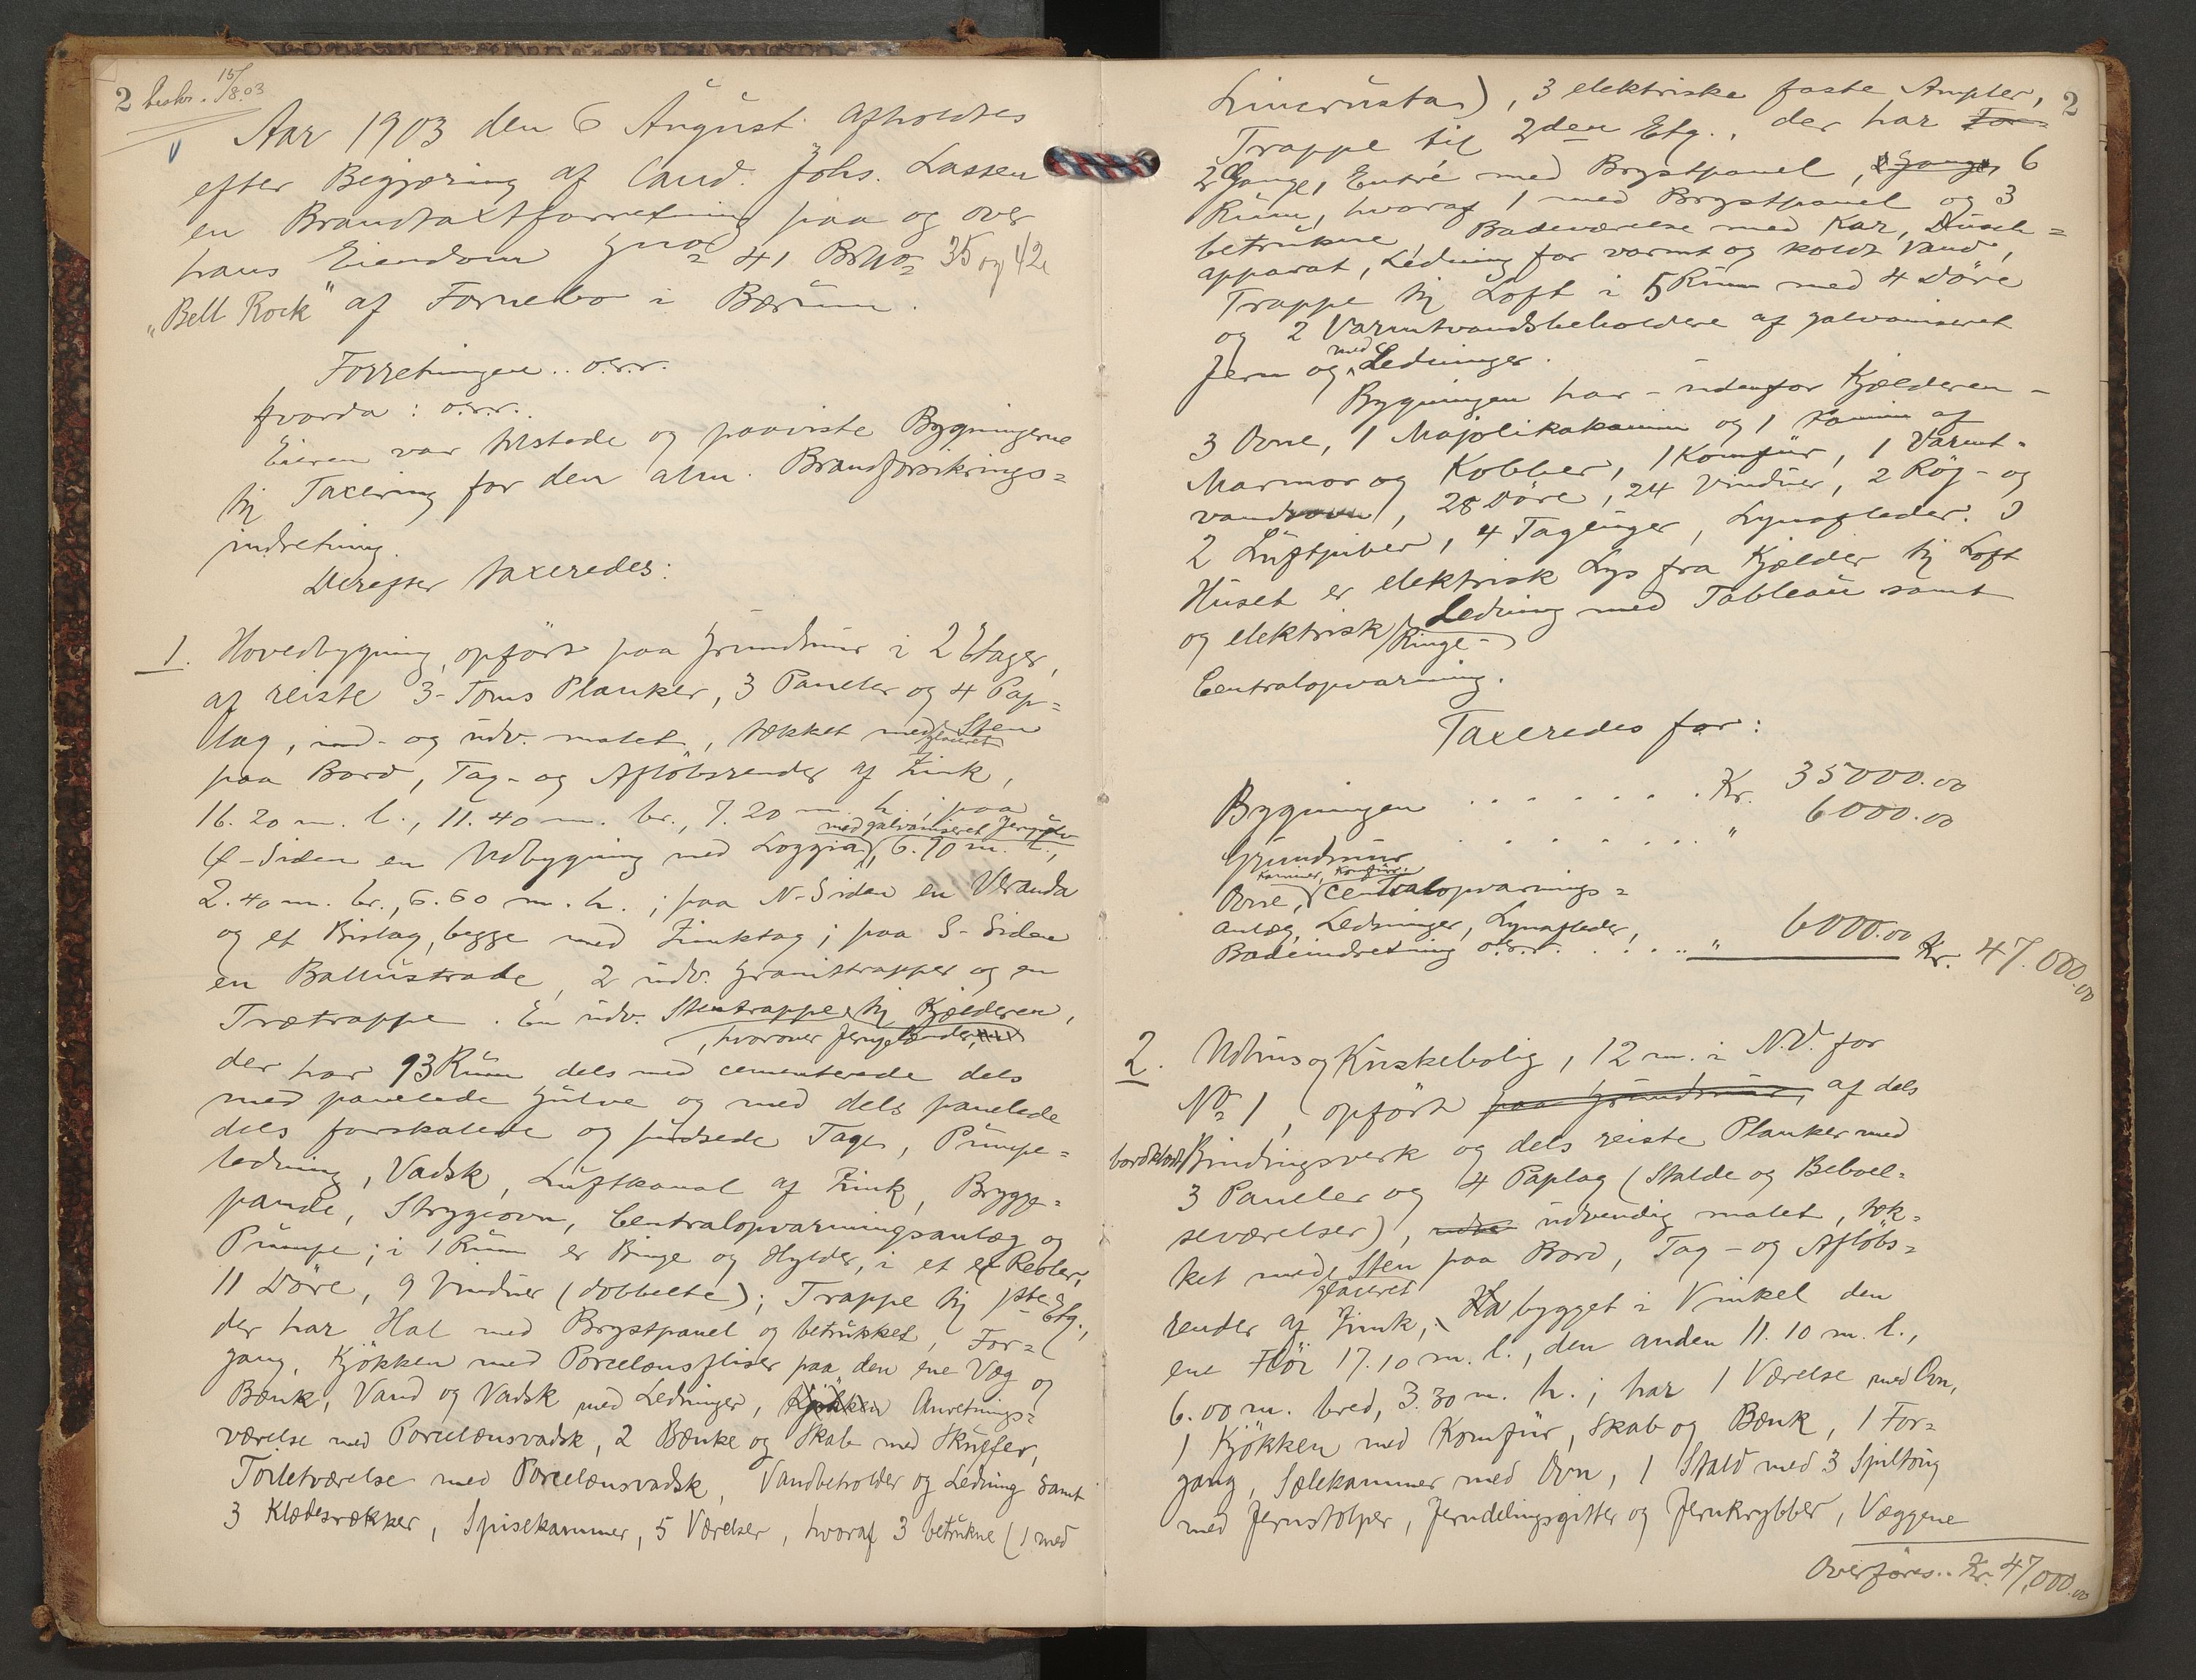 2 beskr. 15/8.03
Aar 1903 den 6 August afholdtes
efter Begjæring af Cand. Johs. Lassen
en Brandtaxtforretning paa og over
hans Eiendom Gno 41 Bno 35 og 42
"Bell Rock" af Fornebo i Bærum.
Forretningen .. o.s.v.
hvorda : o.s.v.
Eieren var tilstede og paaviste Bygningerne
til Taxering for den alm. Brandforsikrings=
indretning.
Derefter taxeredes:
1. Hovedbygning, opført paa Grundmur i 2 Etager,
af reiste 3-Toms Planker, 3 Paneler og 4 Pap=
lag, ind- og udv. malet, tækket med glaseret Sten
paa Bord, Tag- og Afløbsrender af Zink,
16.20 m. l., 11.40 m. br., 7.20 m. h.; paa
Ø-Siden en Udbygning med Loggia med galvaniseret Jerngulv, 6.90 m. l.,
2.40 m. br., 6.60 m. h.; paa N-Siden en Veranda
og et Bislag, begge med Zinktag; paa S-Siden
en Ballustrade, 2 udv. Granittrapper og en
Trætrappe. En udv. Stentrappe til Kjelderen,
, hvorover Jerngelænder,
der har 13 Rum dels med cementerede dels
med panelede Gulve og med dels panelede
dels forskalede og pudsede Tage, Pumpe=
ledning, Vadsk, Luftkanal af Zink, Brygge=
pande, Strygeovn, Centralopvarmningsanlæg og
Pumpe; i 1 Rum er Binge og Hylder, i et er Reoler,
11 Døre, 9 Vinduer (dobbelte); Trappe til 1ste Etg.,
der har Hal med Brystpanel og betrukket, For=
gang, Kjøkken med Porcelænsfliser paa den ene Væg og
Bænk, Vand og Vadsk med Ledninger, Kjøkken Anretnings=
værelse med Porcelænsvadsk, 2 Bænke og Skab med Skuffer,
Toiletværelse med Porcelænsvadsk, Vandbeholder og Ledning samt
3 Klædesrækker, Spisekammer, 5 Værelser, hvoraf 3 betrukne (1 med
2
Lincrusta), 3 elektriske faste Ampler,
Trappe til 2den Etg., der har For=
2 Gange, Entré med Brystpanel, Gange, 6
Rum, hvoraf 1 med Brystpanel og 3
betrukne, Badeværelse med Kar, Dusch=
apparat, Ledning for varmt og koldt Vand,
Trappe til Loft i 5 Rum med 4 Døre
og 2 Varmtvandsbeholdere af galvaniseret
Jern og med Ledninger.
Bygningen har - udenfor Kjælderen -
3 Ovne, 1 Majolikakamin og 1 Kamin af
Marmor og Kobber, 1 Komfur, 1 Varmt=
vandsovn, 28 Døre, 24 Vinduer, 2 Røg- og
2 Luftpiber, 4 Tagluger, Lynafleder. I
Huset er elektrisk Lys fra Kjælder til Loft
og elektrisk Ringe- Ledning med Tableau samt
Centralopvarming.
Taxeredes for:
Bygningen . . . . . . . . Kr. 35000.00
Grundmur . . . . . . . . " 6000.00
Ovne, Kaminer, Komfur, Centralopvarmings=
anlæg, Ledninger, Lynafleder,
Badeindretning o.s.v. . . . . " 6000.00 Kr. 47.000.00
2. Udhus og Kuskebolig, 12 m. i N.V. for
No 1, opført paa Grundmur, af dels
bordklædt Bindingsverk og dels reiste Planker med
3 Paneler og 4 Paplag (Stalde og Beboel=
sesværelser), udv. udvendig malet, tæk=
ket med glaseret Sten paa Bord, Tag- og Afløbs=
render af Zink, bygget i Vinkel den
ene Fløi 17.10 m. l., den anden 11.10 m. l.,
6.00 m. bred, 3.30 m. h.; har 1 Værelse med Ovn,
1 Kjøkken med Komfur, Skab og Bænk, 1 For=
gang, Sælekammer med Ovn, 1 Stald med 3 Spiltoug
med Jernstolper, Jerndelingsgitter og Jernkrybber, Væggene
Overføres .. Kr. 47,000.00